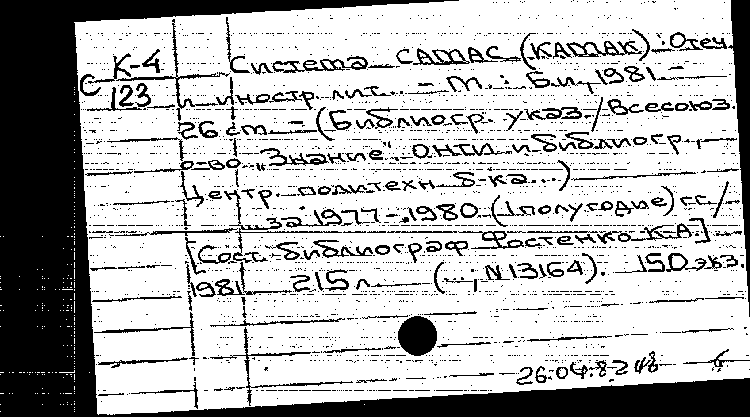 К-4
С 123
Система САМАС (КАМАК) : Отеч.
и иностр. лит... - М. : Б.и., 1981. -
26 см. - (Библиогр. указ. / Всесоюз.
о-во "Знание". ОНТИ и библиогр.,
Центр. политехн. б-ка...)
...за 1977-1980 (I полугодие) гг. /
[Сост. библиограф Фостенко К.А.]
1981. 215 л. (...; N 13164). 150 экз.
26.04.8